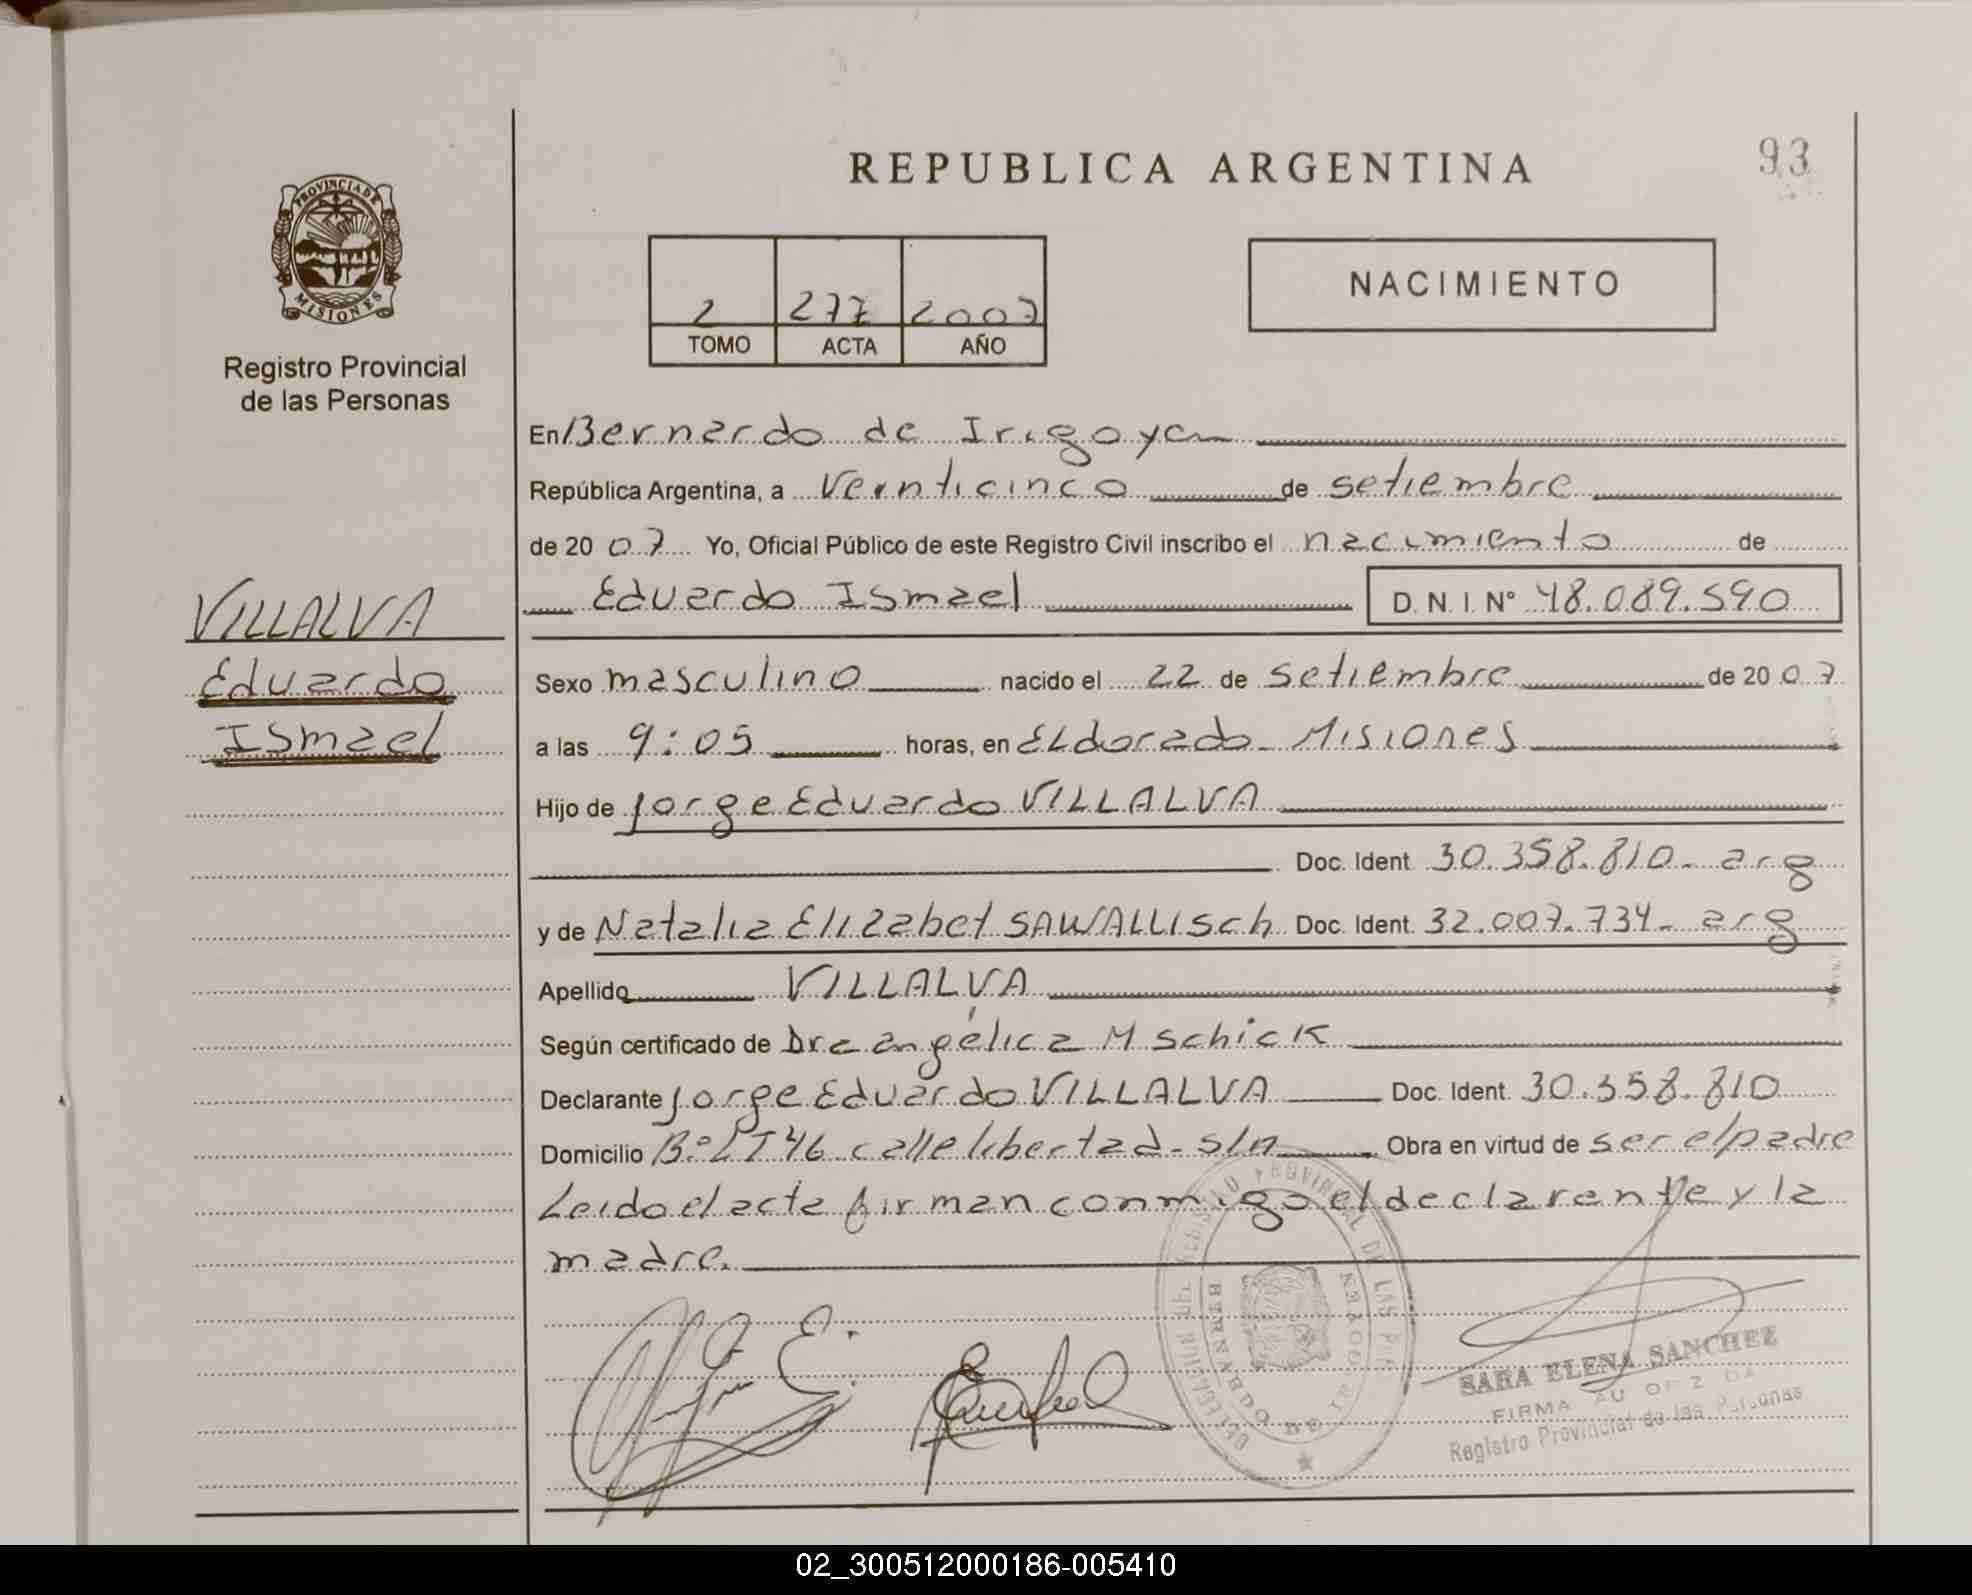 REPUBLICA ARGENTINA
93
PROVINCIA DE
MISIONES
Registro Provincial
de las Personas
2 277 2007
TOMO ACTA AÑO
NACIMIENTO
En Bernardo de Irigoyen
República Argentina, a Veinticinco de setiembre
de 20 07 Yo, Oficial Público de este Registro Civil inscribo el nacimiento de
Eduardo Ismael D.N.I.Nº 48.089.590
VILLALVA
Eduardo
Ismael
Sexo masculino nacido el 22 de setiembre de 20 07
a las 9:05 horas, en ELdorado - Misiones
Hijo de Jorge Eduardo VILLALVA
Doc. Ident. 30.358.810 - arg
y de Natalia Elizabet SAWALLISch Doc. Ident. 32.007.734 - arg
Apellido VILLALVA
Según certificado de Dra angélica M schick
Declarante Jorge Eduardo VILLALVA Doc. Ident. 30.358.810
Domicilio Bº LT 46 calle libertad - s/n Obra en virtud de ser el padre
Leido el acta firman conmigo el declarante y la
madre.
REGISTRO PROVINCIAL DE LAS
BERNARDO DE
SARA ELENA SANCHEZ
FIRMA
Registro Provincial de las Personas
02_300512000186-005410